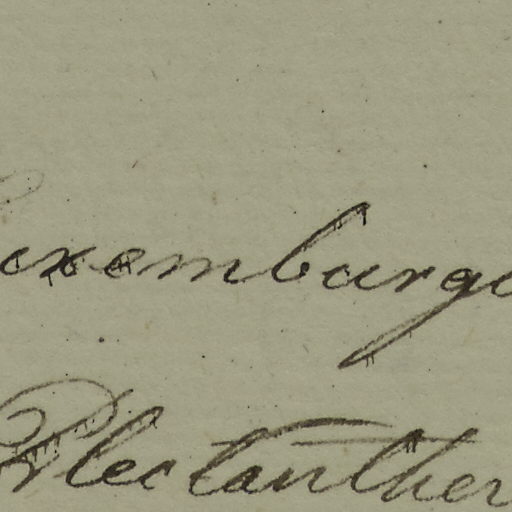 uxemburge
Plectanther